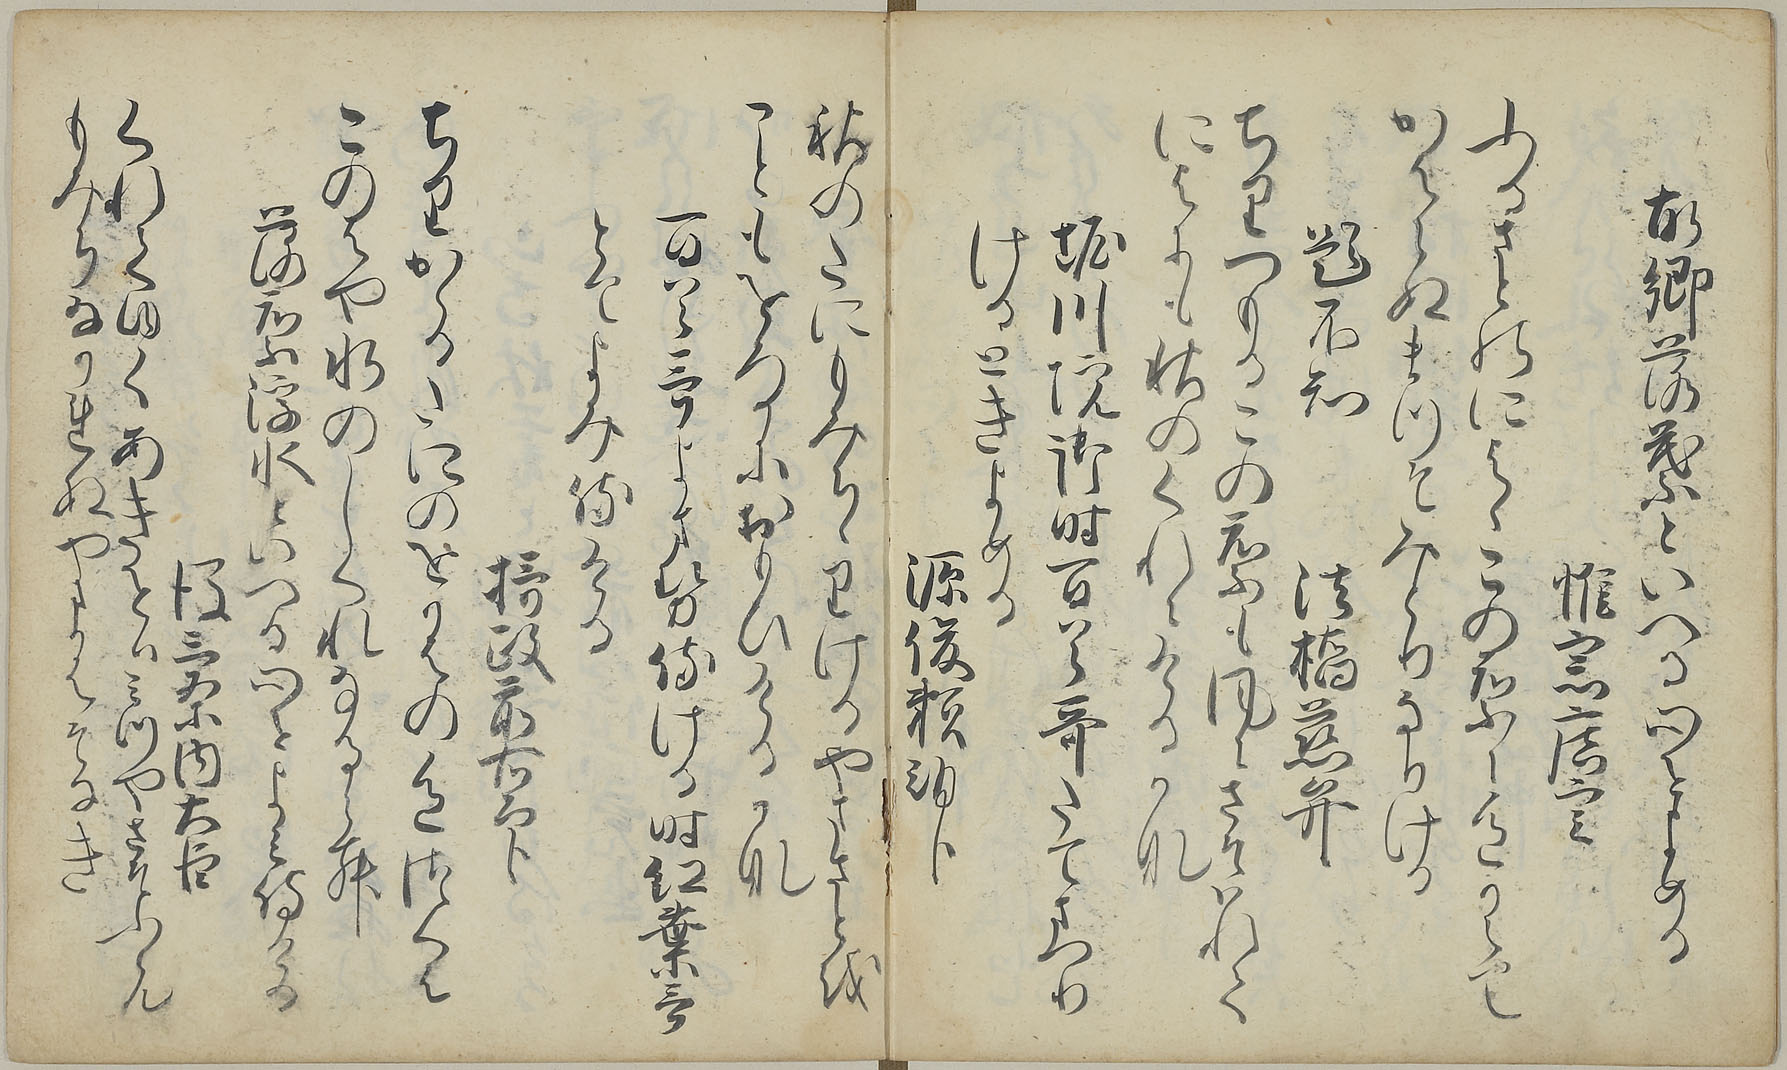 故郷落葉といへる心をよめる
惟宗広言
ふるさとのにはゝこの葉に色かへて
かはらぬまつそみとりなりける
題不知
法橋慈弁
ちりつもるこの葉も風にさそはれて
にはにも秋のくれにけるかな
堀川院御時百首哥たてまつり
けるときよめる
源俊頼朝臣
秋のたにもみちゝりけるやまさとを
こともをろかにおもひけるかな
百首哥よませ侍ける時紅葉哥
とてよみ侍ける
摂政前右大臣
ちりかゝるたにのをかはの色つくは
このはや水のしくれなるらむ
落葉浮水といへる心をよみ侍ける
後三条内大臣
くれてゆくあきをは水やさそふらん
もみちなかれぬやまかはそなき